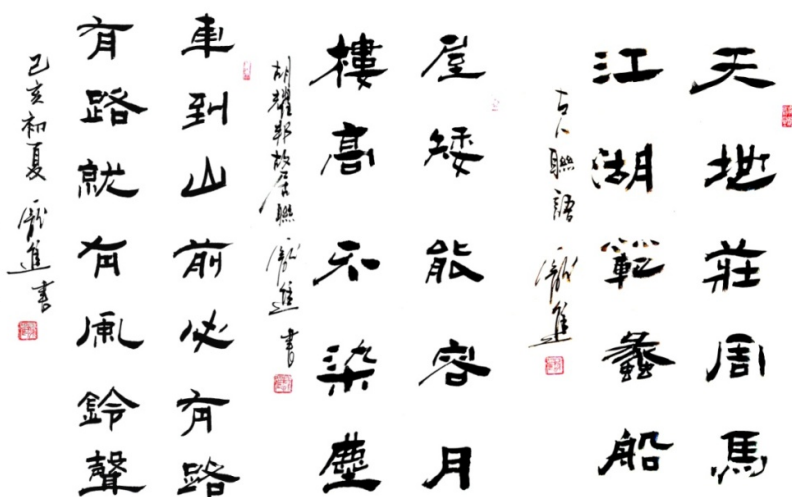 天地莊周馬
江湖範蠡船
古人聯語
屋矮能容月
樓高不染塵
胡耀邦故居聯 書
車到山前必有路
有路就有風鈴聲
己亥初夏 書